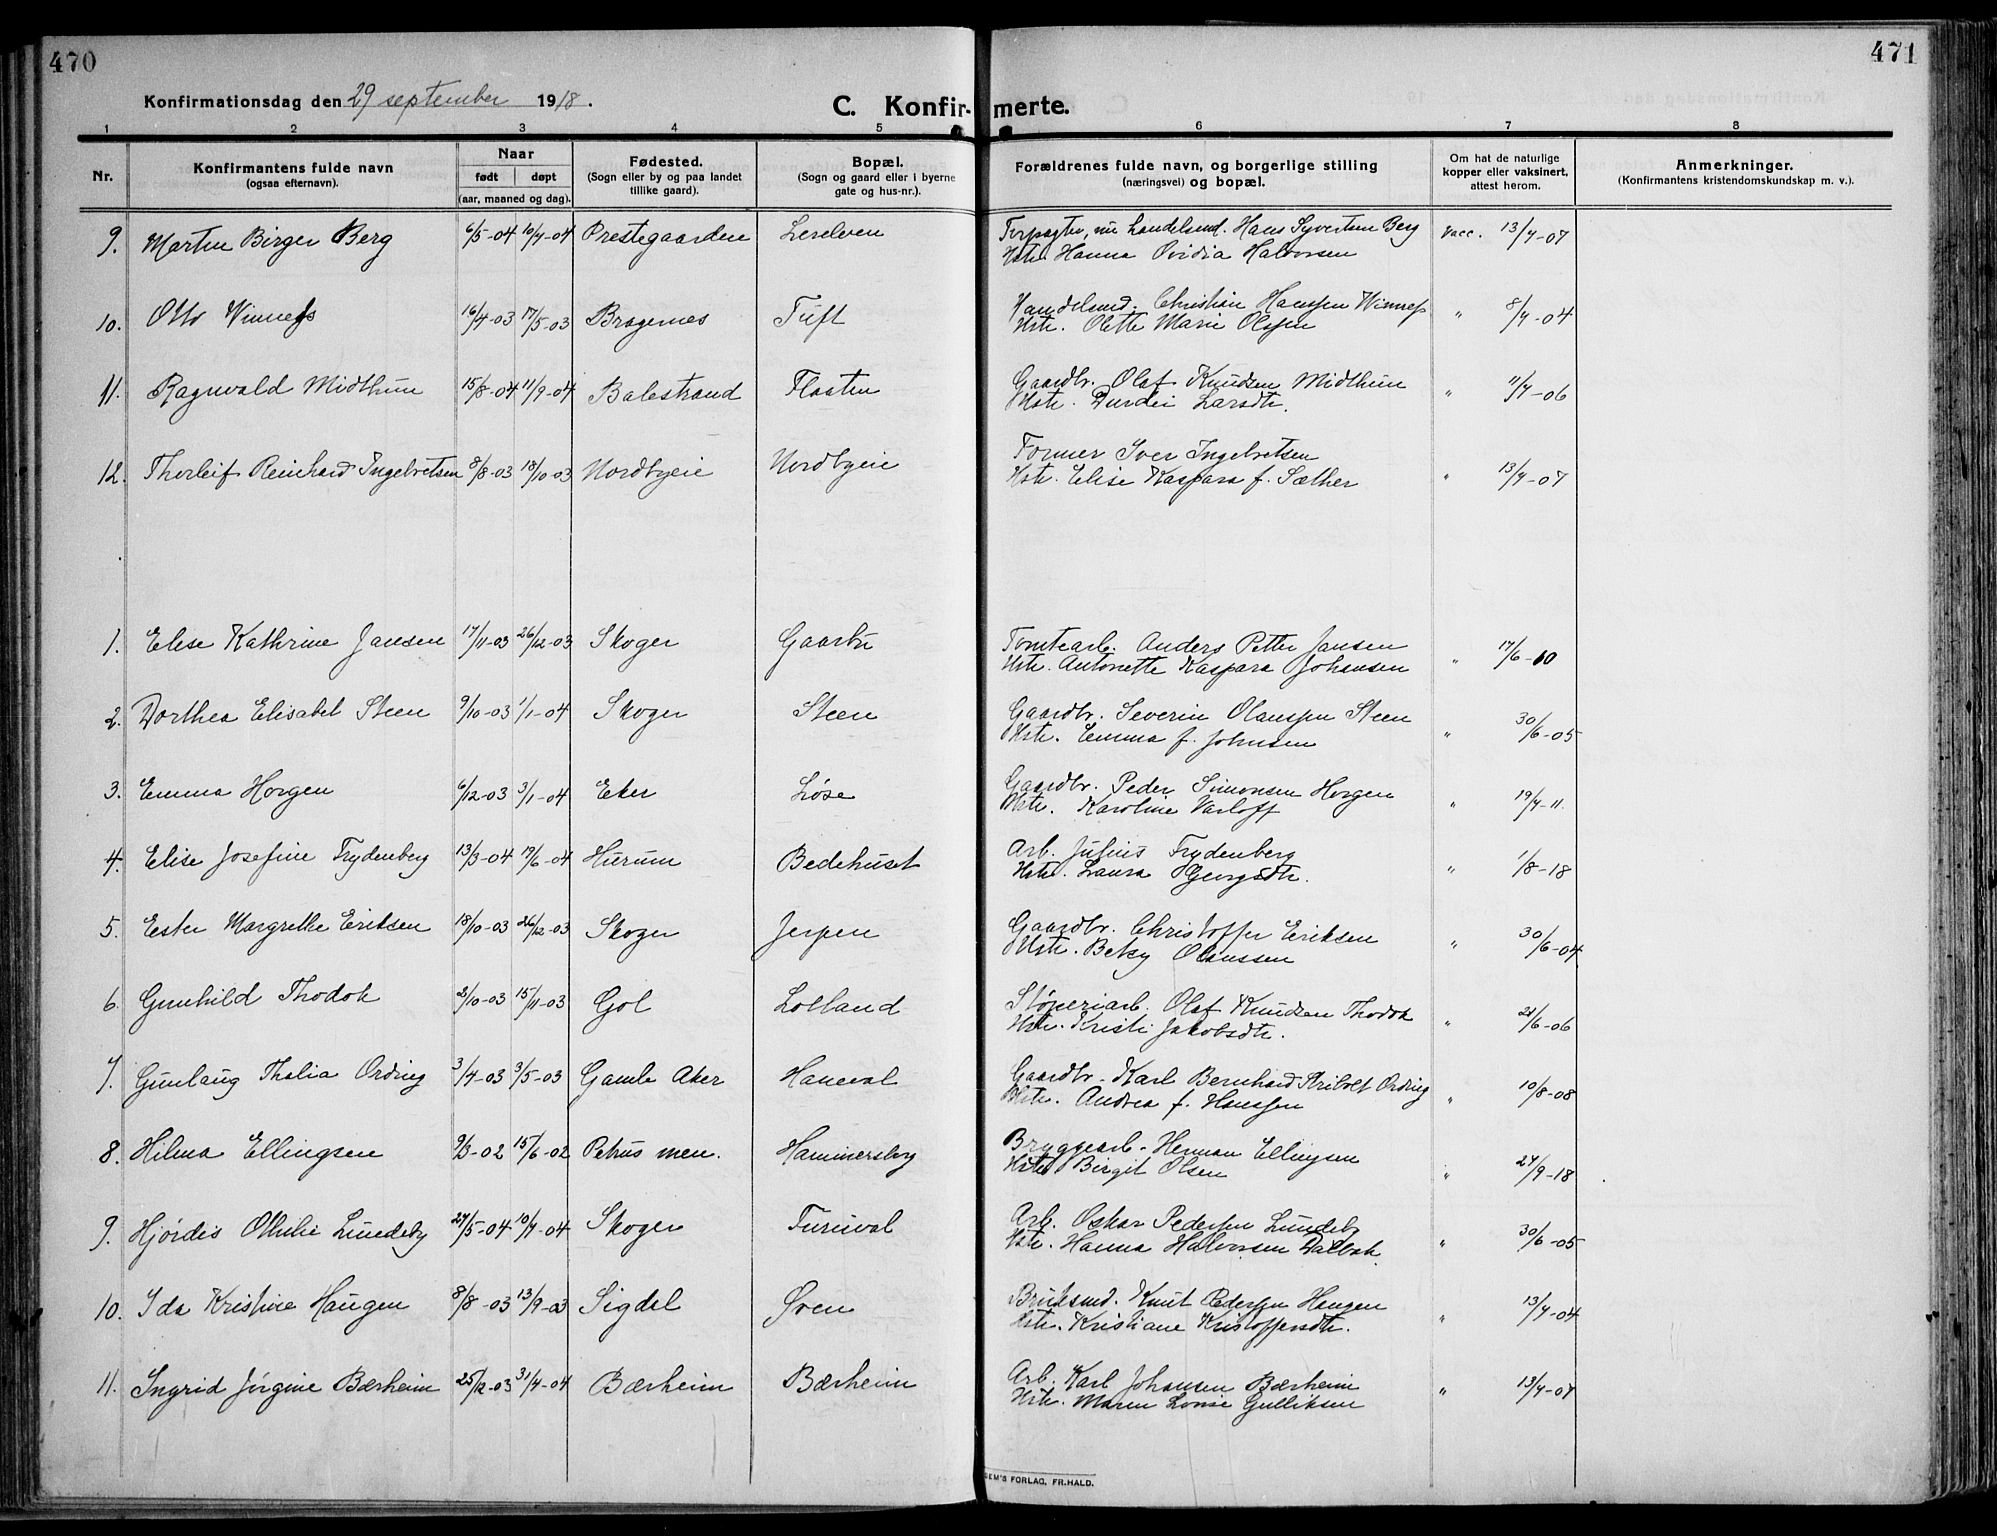 470
471
Konfirmationsdag den 29 september 1918.
C. Konfirmerte.
1 2 3 4 5 6 7 8
Nr.
Konfirmantens fulde navn
(ogsaa efternavn).
Naar
født døpt
(aar, maaned og dag).
Fødested.
(Sogn eller by og paa landet
tillike gaard).
Bopæl.
(Sogn og gaard eller i byerne
gate og hus-nr.).
Forældrenes fulde navn, og borgerlige stilling
(næringsvei) og bopæl.
Om hat de naturlige
kopper eller vaksinert,
attest herom.
Anmerkninger.
(Konfirmantens kristendomskundskap m. v.).
9. Martin Birger Berg 6/5-04 10/7-04 Prestegaarden Lerelven Forpagter, nu Landelsmd. Hans Syvertsen Berg vacc. 13/7-07
Hstr. Hanna Ovidia Halvorsen
10. Otto Winness 16/4-03 17/5-03 Bragernes Tuft Handelsmd. Christian Hanssen Winness " 8/7-04
Hstr. Olette Marie Olssen
11. Ragnvald Midthun 15/8-04 11/9-04 Balestrand Flaaten Gaardbr. Olaf Knudsen Midthun " 11/7-06
Hstr. Durdei Larsdtr.
12. Thorleif Reinhard Ingebretsen 8/8-03 18/10-03 Nordbyeie Nordbyeie Former Iver Ingebretsen " 13/7-07
Hstr. Elise Kaspara f. Sæther
1. Elise Kathrine Jansen 17/11-03 26/12-03 Skoger Gaarbu Tomtearb. Anders Petter Jansen " 17/6-10
Hstr. Antonette Kaspara Johansen
2. Dorthea Elisabet Steen 9/10-03 1/1-04 Skoger Steen Gaardbr. Severin Olanssen Steen " 30/6-05
Hstr. Emma f. Johnsen
3. Emma Horgen 6/12-03 3/1-04 Eker Løse Gaardbr. Peder Simonsen Horgen " 19/7-11
Hstr. Karoline Varloff
4. Elise Josefine Frydenberg 13/3-04 19/6-04 Hurum Bedehuset Arb. Julius Frydenberg " 1/8-18
Hstr. Laura Georgsdtr.
5. Ester Margrethe Eriksen 18/10-03 26/12-03 Skoger Jerpen Gaardbr. Christoffer Eriksen " 30/6-04
Hstr. Betsy Olanssen
6. Gunhild Thodok 2/10-03 15/11-03 Gol Lolland Støperiarb. Olaf Knudsen Thodok " 21/6-06
Hstr. Kristi Jakobsdtr.
7. Gunlaug Thalia Ording 3/4-03 3/5-03 Gamle Aker Haneval Gaardbr. Karl Bernhard Stribolt Ording " 10/8-08
Hstr. Andrea f. Hanssen
8. Hilma Ellingsen 9/3-02 15/6-02 Petrus men. Hammersborg Bryggearb. Herman Ellingsen " 27/9-18
Hstr. Birgit Olsen
9. Hjørdis Othilie Lundeby 27/5-04 10/7-04 Skoger Furuval Arb. Oskar Pedersen Lundeby " 30/6-05
Hstr. Hanna Halvorsen Dalbak
10. Ida Kristine Haugen 8/8-03 13/9-03 Sigdal Øren Bruksmd. Knut Pedersen Haugen " 13/7-04
Hstr. Kristiane Kristoffersdtr.
11. Ingrid Jørgine Bærheim 25/12-03 31/7-04 Bærheim Bærheim Arb. Karl Johansen Bærheim " 13/7-07
Hstr. Maren Lovise Gulliksen
SEM'S FORLAG, FR. HALD.